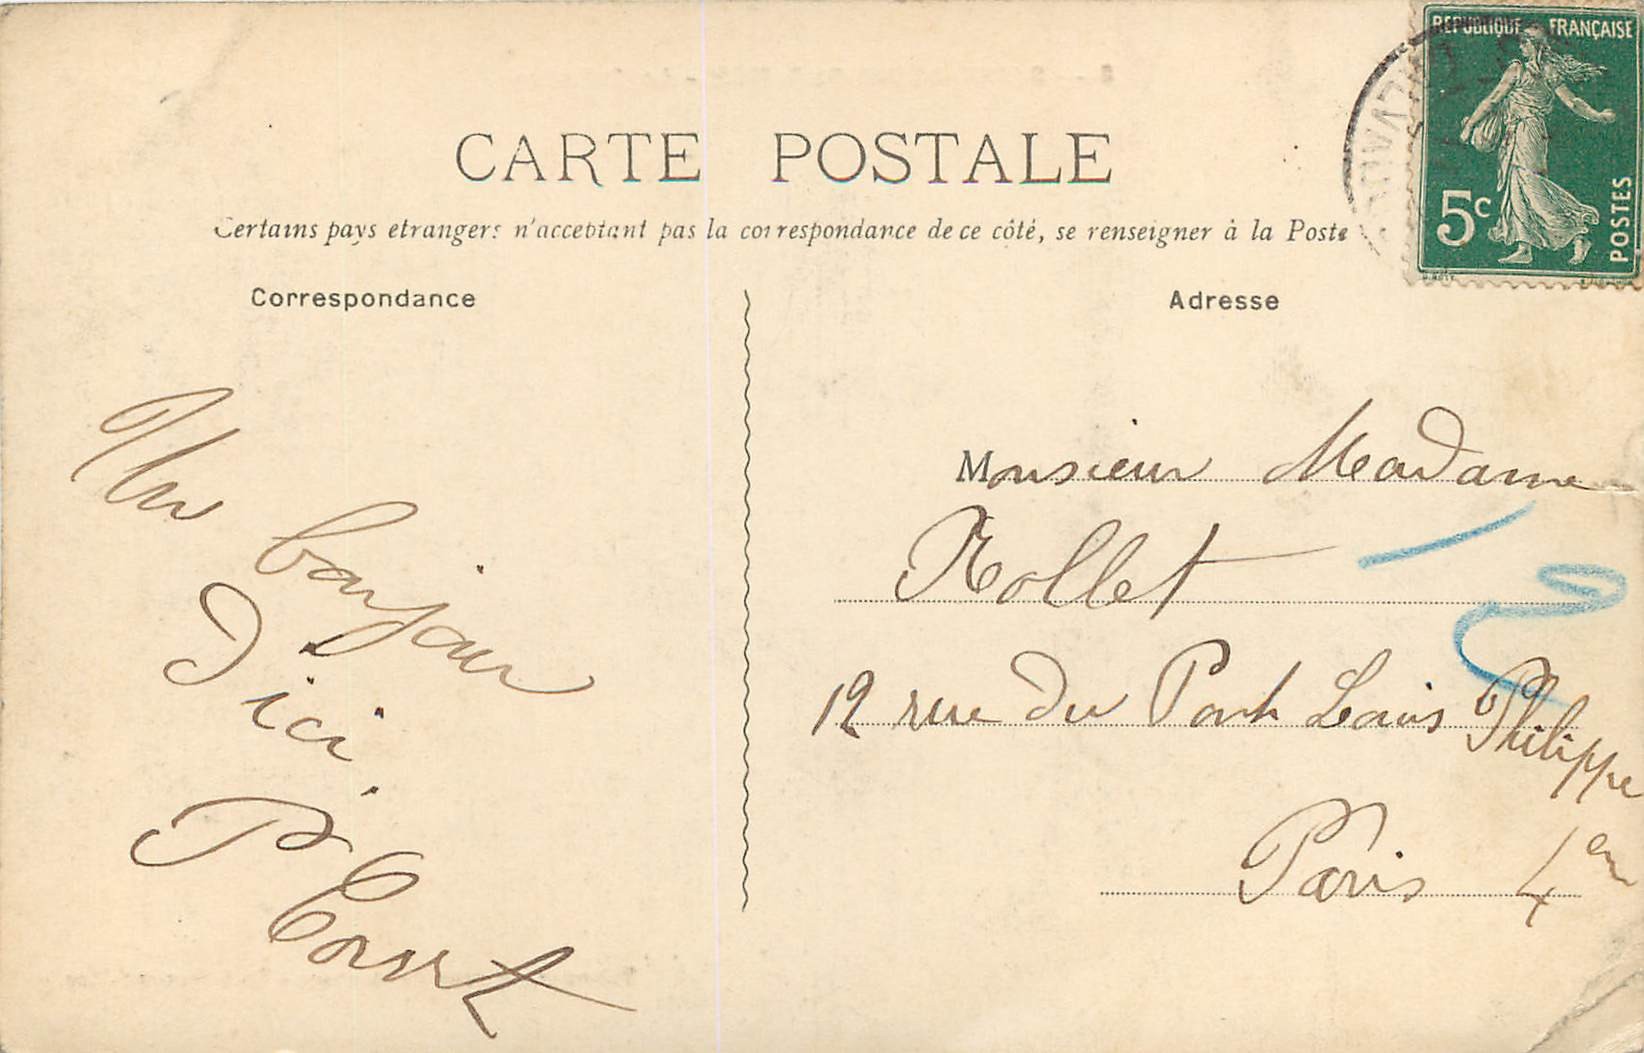 CARTE POSTALE
Certains pays etrangers n'acceptant pas la correspondance de ce côté, se renseigner à la Poste
Correspondance
Adresse
REPUBLIQUE FRANÇAISE
5c
POSTES
Un bonjour
d'ici.
P
Monsieur Madame
Rollet
12 rue du Pont Louis Philippe
Paris 4em